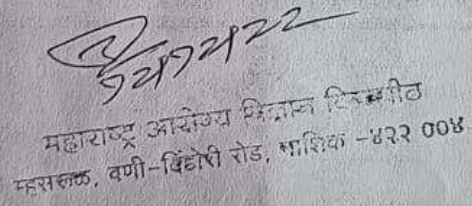 महाराष्ट्र आरोग्य विज्ञान विद्यापीठ
म्हसरूळ, वणी-दिंडोरी रोड, नाशिक -४२२ 00४